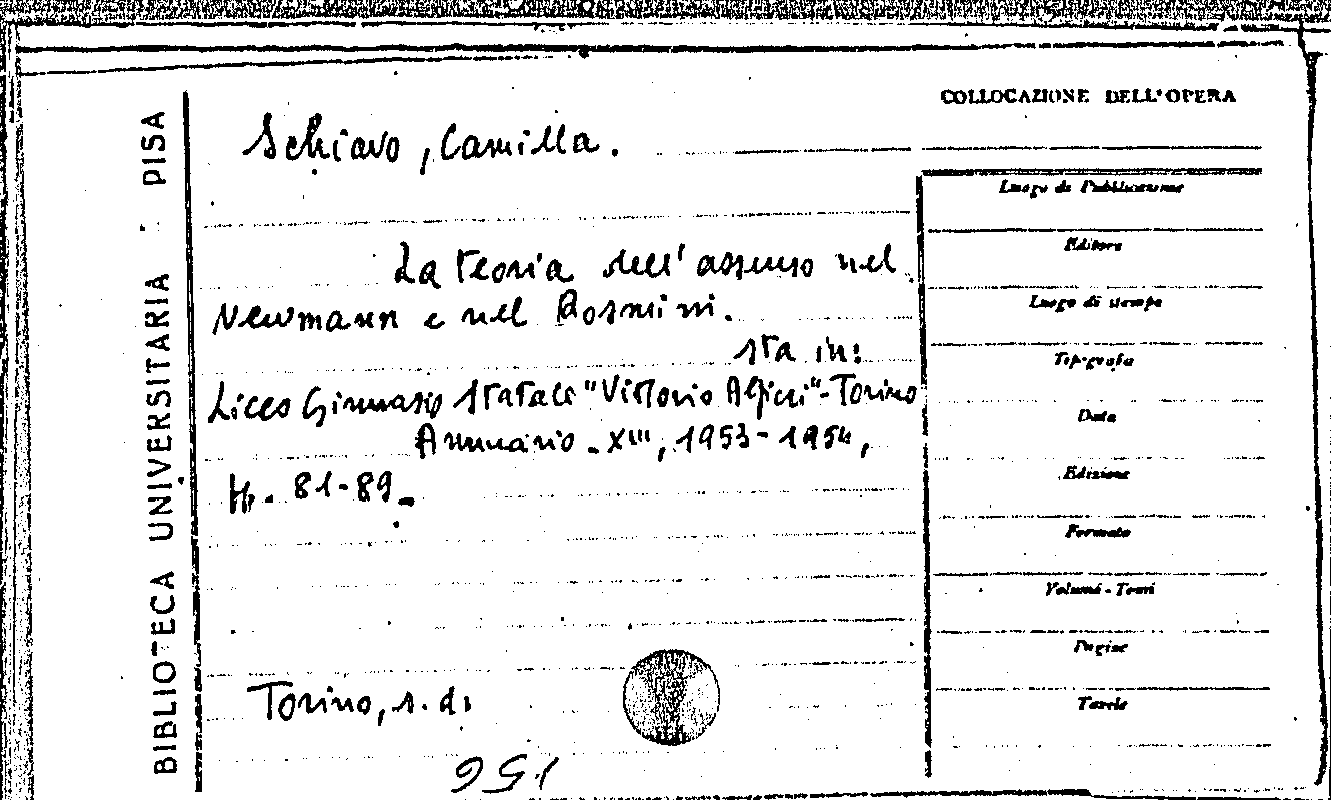 BIBLIOTECA UNIVERSITARIA - PISA
Schiavo, Camilla.
La teoria dell'assenso nel
Newmann e nel Rosmini.
sta in:
Liceo Ginnasio Statale "Vittorio Alfieri" - Torino
Annuario - XIII, 1953-1954,
pp. 81-89.
Torino, s. d.
COLLOCAZIONE DELL'OPERA
Luogo di Pubblicazione
Editore
Luogo di stampa
Tipografia
Data
Edizione
Formato
Volumi - Tomi
Pagine
Tavole